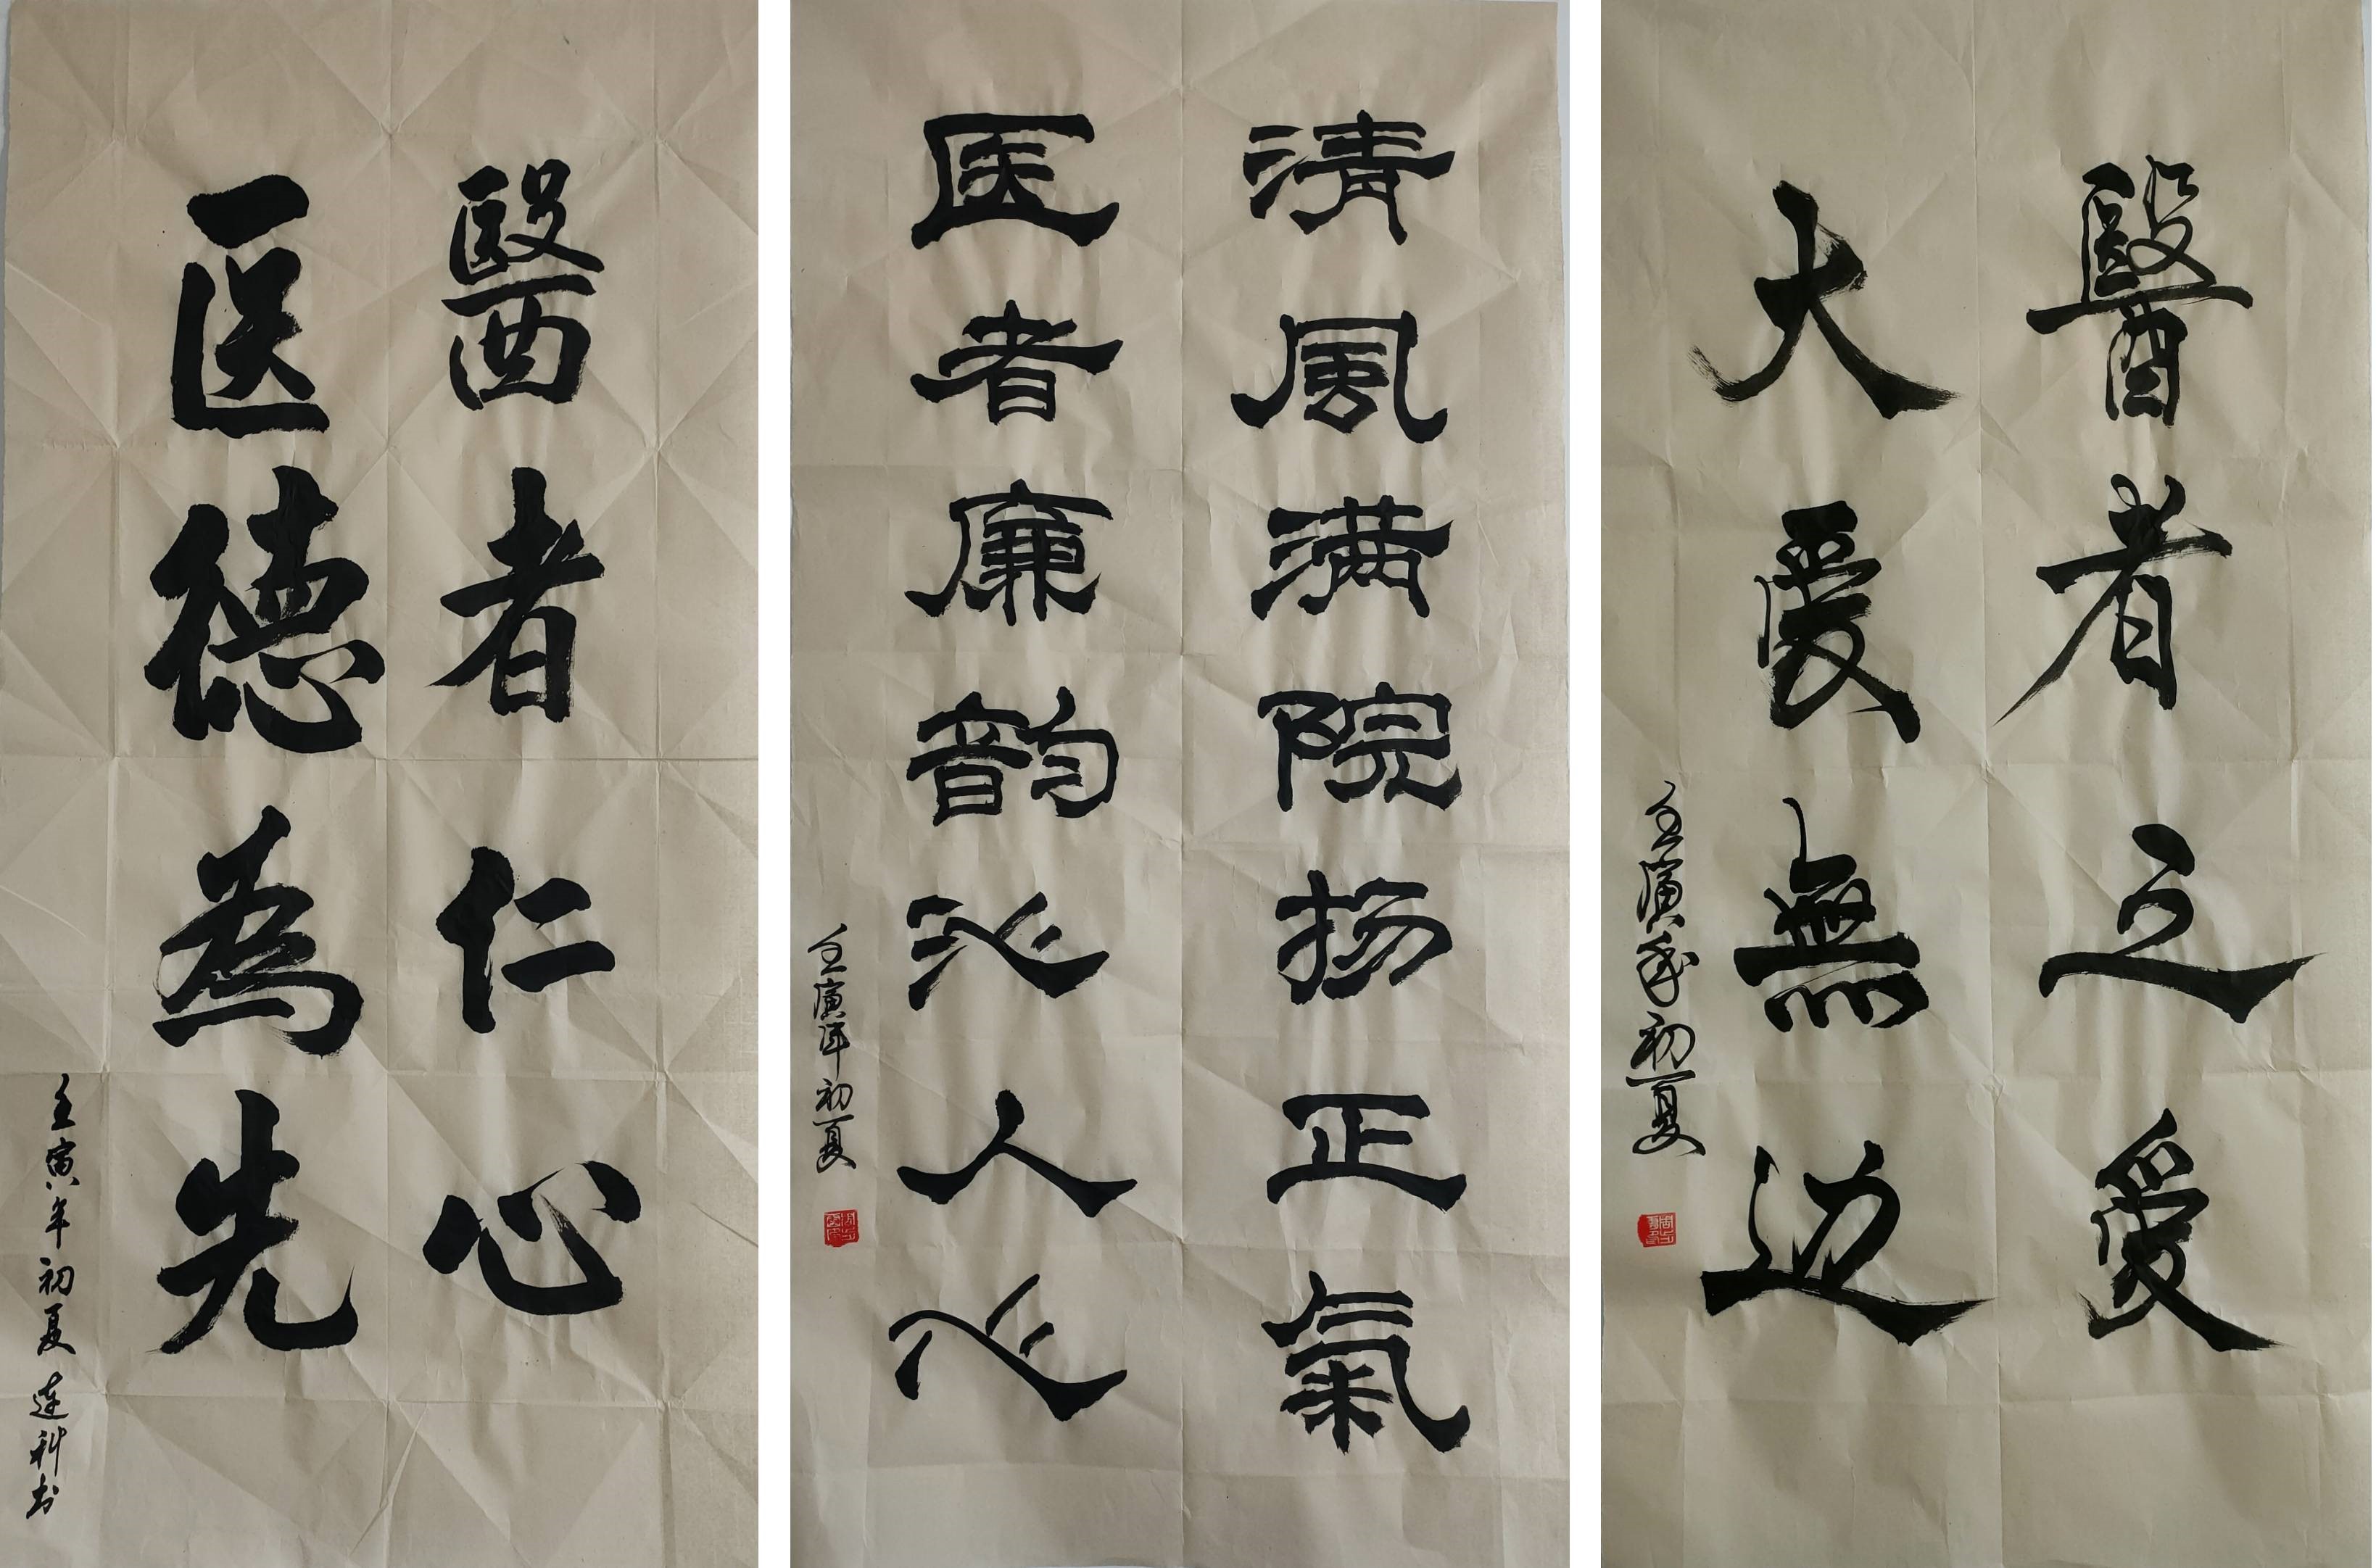 醫者仁心
医德為先
壬寅年初夏连科书
清風满院扬正氣
医者廉韵沁人心
壬寅年初夏
醫者之爱
大爱無边
壬寅年初夏